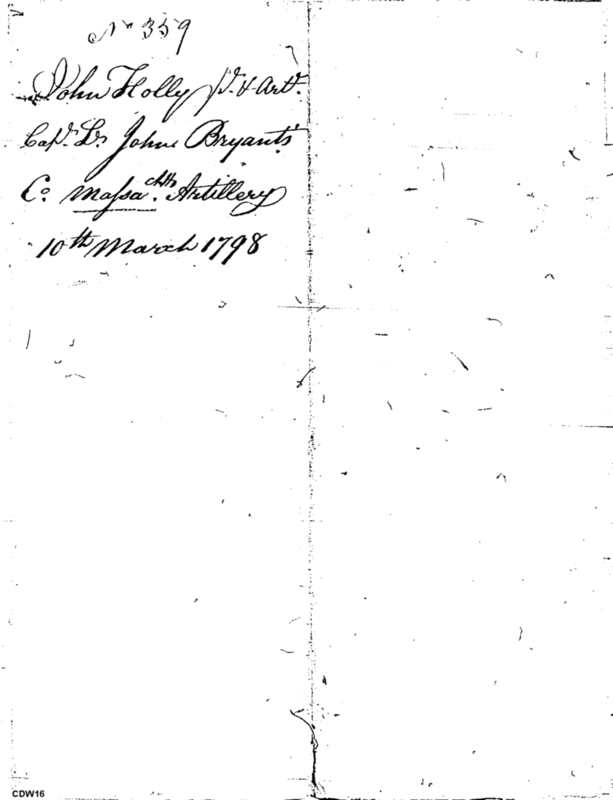 No 359
John Holly pt. & Arty.
Capt. Lt. John Bryants
Co. Massachtts. Artillery
10th March 1798
CDW16